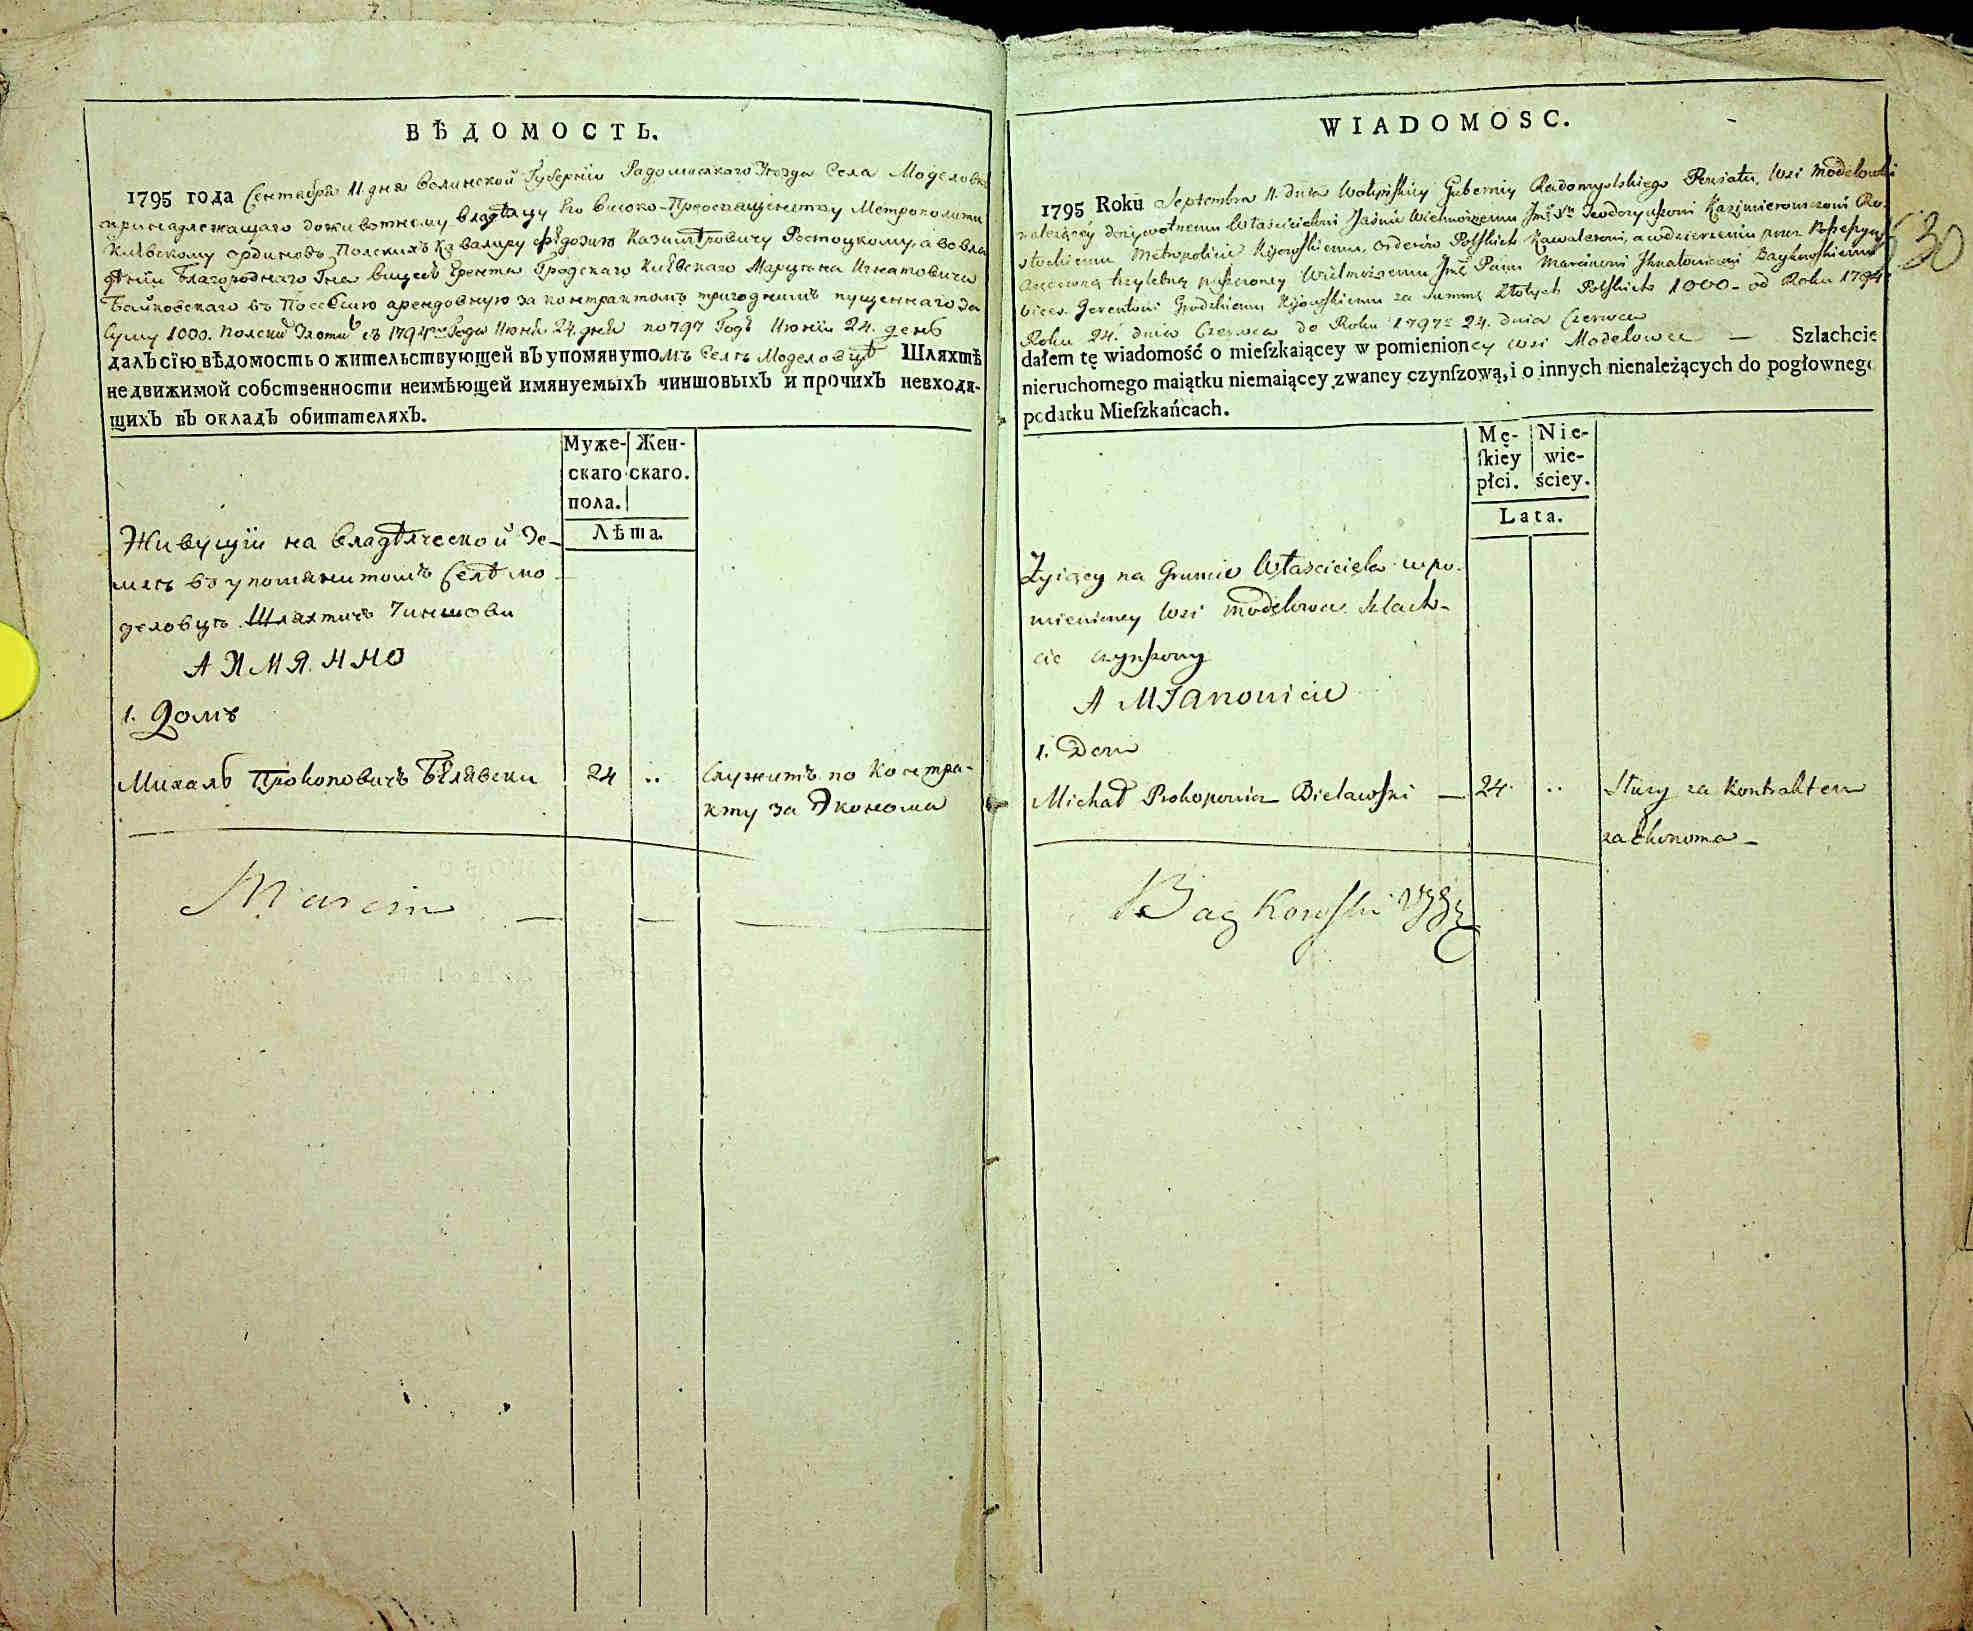 ВѢДОМОСТЬ.
1795 года Сентября 11 дня Волинской Губернїи Радомисского Уезда Села Моделовки
принадлежащаго доживотнему владѣлцу Его Високо-Преосвященству Митрополити
Киѣвскому ординовъ Полскихъ Кавалиру Фѣдозию Казимѣровичу Ростоцкому, а во вла
дѣнїи Благороднаго Гна Вицесъ Еренти Градскаго Киѣвскаго Марцина Игнатовича
Байковскаго въ Посесїию арендовную за контрактомъ тригоднимъ пущеннаго за
Суму 1000. полски Злоти съ 1794 Года Июня 24. дня по 797 Годъ Июнїи 24. день
далъ сїю вѣдомость о жительствующей въ упомянутомъ Селѣ Моделовцѣ Шляхтѣ
недвижимой собственности неимѣющей имянуемыхъ чиншовыхъ и прочихъ невходя-
щихъ въ окладъ обитателяхъ.
Муже-скаго пола. Жен-скаго.
Лѣта.
Живущїи на владѣлческой Зе-
млѣ во упомянитомъ Селѣ мо
деловцѣ Шляхтичъ Чиншови
А ИМЯННО
1. Домъ
Михалъ Прокоповичъ Бѣлявски 24 .. Служитъ по контра-
кту за Економа
Marcin
WIADOMOSC.
1795 Roku Septembra 11. dnia Wołyńskiey Gubernij Radomyslskiego Powiatu, Wsi Modelowki
należącey dożywotnemu Właścicielowi Jaśnie Wielmożnemu Jmć Xu Teodozyuszowi Kazimierowiczowi Ro-
stockiemu Metropolicie Kijowskiemu, Orderów Polskich Kawalerowi, a w dzierżeniu przez Possessyą
arędowną trzyletnią puszczoney Wielmożnemu Jmć Panu Marcinowi Jhnatowiczowi Baykowskiemu
Vices-Gerentowi Grodzkiemu Kijowskiemu za Summę Złotych Polskich 1000 - od Roku 1794
Roku 24. dnia Czerwca do Roku 1797 24. dnia Czerwca
dałem tę wiadomość o mieſzkaiącey w pomienioney wsi Modelowce — Szlachcie
nieruchomego maiątku niemaiącey zwaney czynſzową, i o innych nienależących do pogłownego
podatku Mieſzkańcach.
Mę-ſkiey płci. Nie-wie-ściey.
Lata.
Żyiącey na Gruncie Właściciela w po-
mienioney Wsi Modelowce Szlach-
cie czynszowy
A MIANOWICIE
1. Dom
Michał Prokopowicz Bielawski — 24 .. Służy za Kontraktem
za Ekonoma —
Baykowski
30